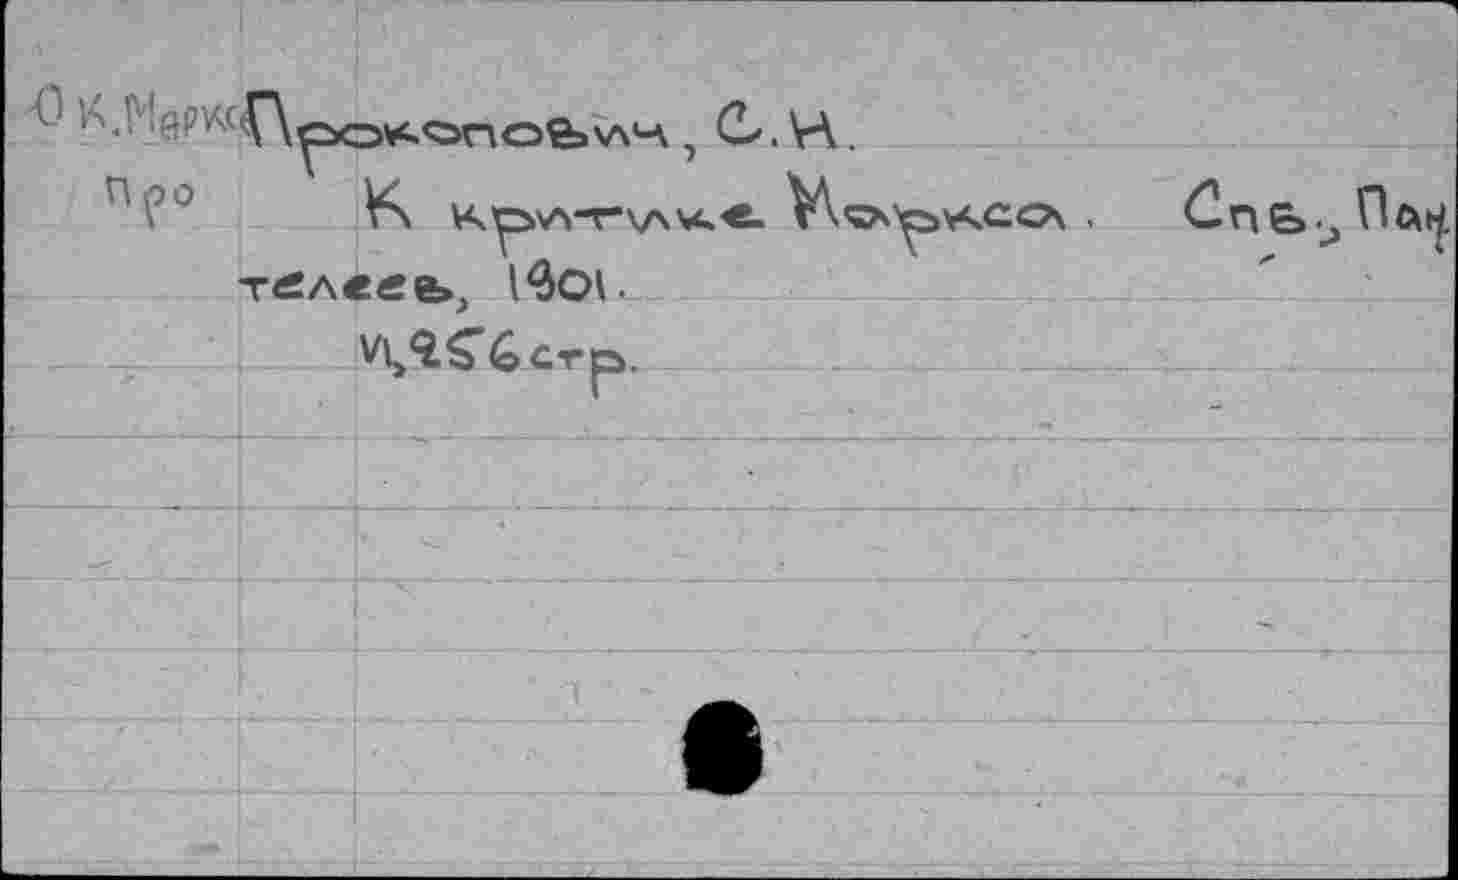 О К.Маркс Прокопович, С.Н.
Про К критике Маркса. Спб., Пан
телеев, 1901.
стр.